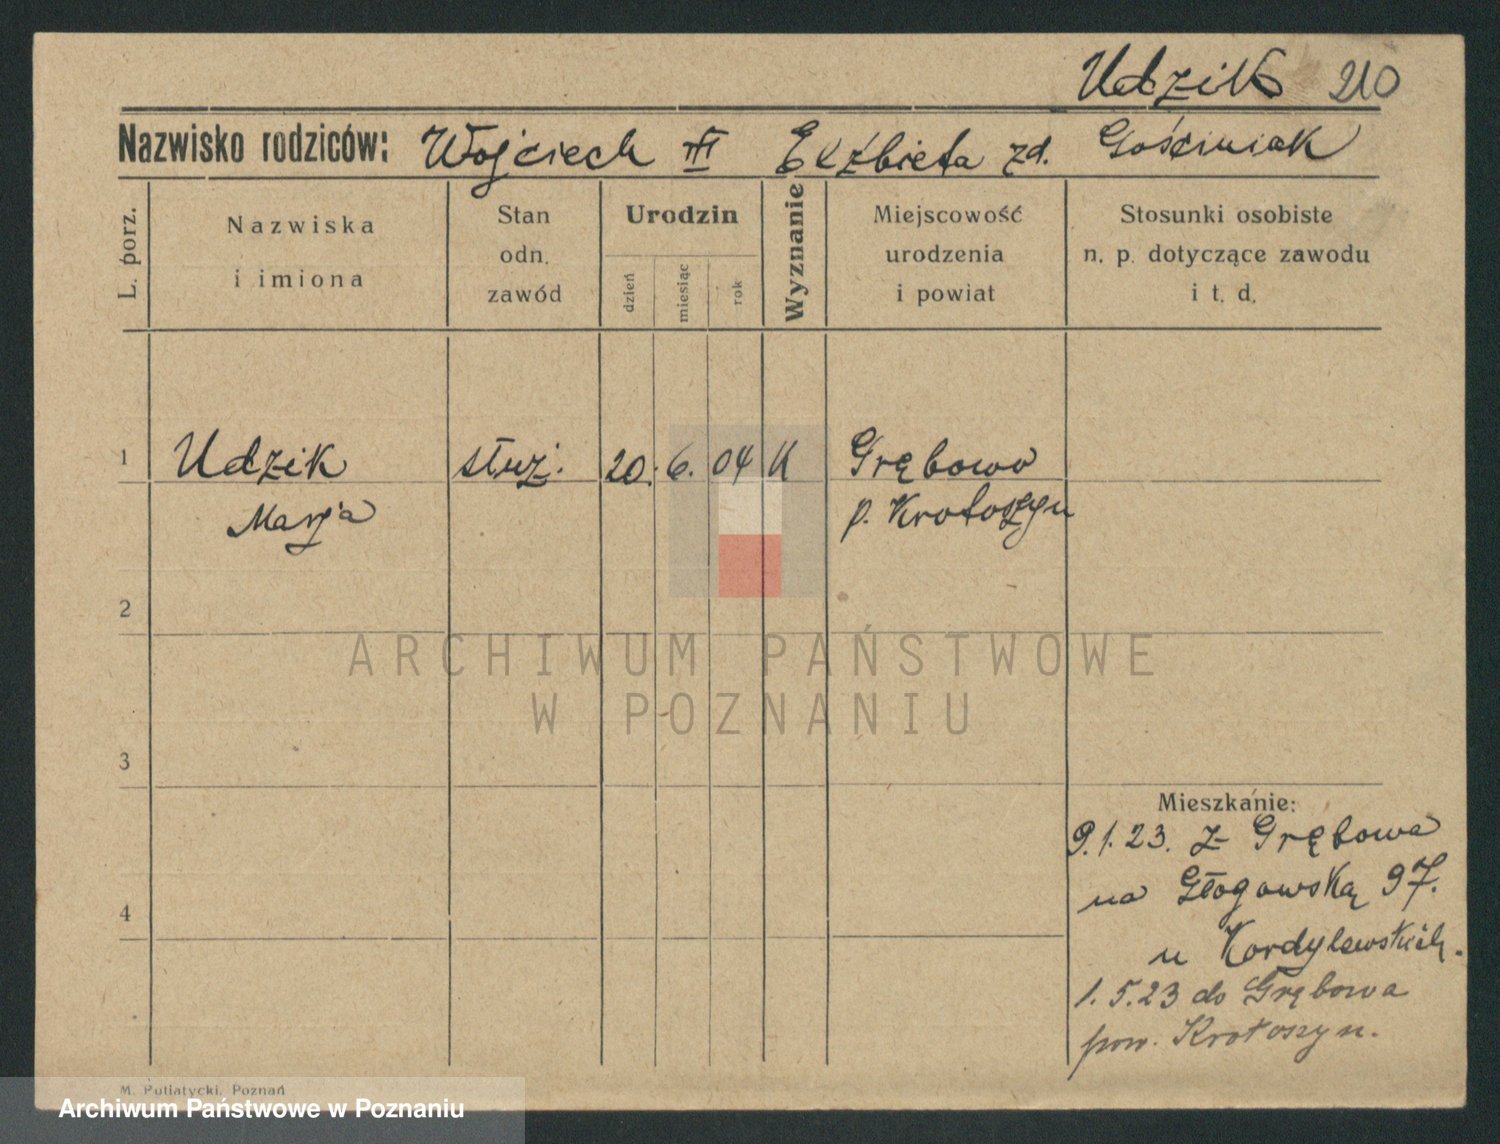 Udzik 210
Nazwisko rodziców: Wojciech III Elżbieta zd. Gościniak
L. porz.
Nazwiska
i imiona
Stan
odn.
zawód
Urodzin
dzień
miesiąc
rok
Wyznanie
Miejscowość
urodzenia
i powiat
Stosunki osobiste
n. p. dotyczące zawodu
i t. d.
1 Udzik służ. 20. 6. 04 K Grębowo
Marja p. Krotoszyn
2
ARCHIWUM PAŃSTWOWE
W POZNANIU
3
Mieszkanie:
9.1.23. z Grębowa
na Głogowską 97.
4
u Kordylewskich.
1.5.23 do Grębowa
pow. Krotoszyn.
M. Putiatycki, Poznań
Archiwum Państwowe w Poznaniu